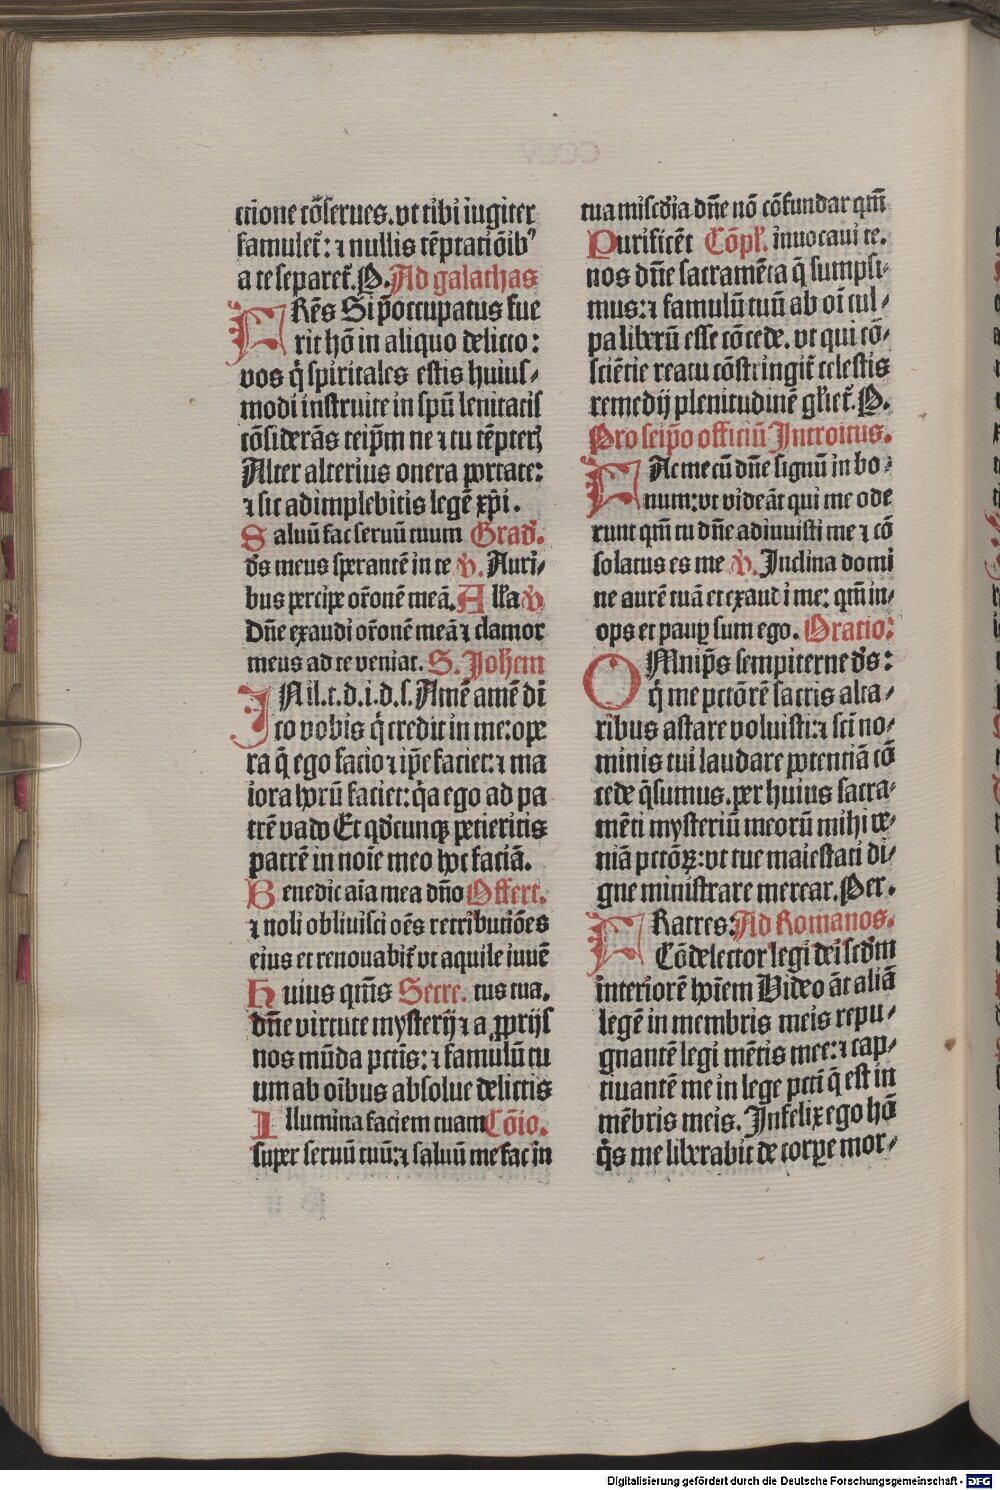 ctione cõserues. vt tibi iugiter
famulet᷑: ⁊ nullis tẽptatiõibꝰ
a te separet᷑. P. Ad galathas
FRẽs Si p̃occupatus fue
rit hõ in aliquo delicto:
vos q̇ spiritales estis huius⸗
modi instruite in spũ lenitatis
cõsiderãs teip̃m ne ⁊ tu tẽpteꝭ
Alter alterius onera portate:
⁊ sic adimplebitis legẽ xp̃i.
Saluũ fac seruũ tuum Grad᷑.
d̃s meus sperantẽ in te v̓. Auri⸗
bus percipe or̃onẽ meã. Alla v̓
Dñe exaudi or̃onẽ meã ⁊ clamor
meus ad te veniat. S. Johem
IN il. t. d. i. d. s. Amẽ amẽ di
co vobis q̇ credit in me: ope
ra q̃ ego facio ⁊ ip̃e faciet: ⁊ ma
iora horũ faciet: q̃a ego ad pa
trẽ vado Et qd̃cunqꝫ petieritis
patrẽ in noĩe meo hoc faciã.
Benedic aĩa mea dño Offert.
⁊ noli obliuisci oẽs retributiões
eius et renouabit᷑ vt aquile iuuẽ
Huius qm̃s Secre. tus tua.
dñe virtute mysterij ⁊ a ꝓprijs
nos mũda pctĩs: ⁊ famulũ tu
um ab oĩbus absolue delictis
Illumina faciem tuam Cõio.
super seruũ tuũ: ⁊ saluũ me fac in
tua misc̃dia dñe nõ cõfundar qm̃
Purificẽt Cõpl̃. inuocaui te.
nos dñe sacramẽta q̃ sumpsi⸗
mus: ⁊ famulũ tuũ ab oĩ cul⸗
pa liberũ esse cõcede. vt qui cõ⸗
sciẽtie reatu cõstringit᷑ celestis
remedij plenitudinẽ gl̃iet᷑. P.
Pro seip̃o officiũ Introitus.
FAc mecũ dñe signũ in bo⸗
num: vt videãt qui me ode
runt qm̃ tu dñe adiuuisti me ⁊ cõ
solatus es me v̓. Inclina domi
ne aurẽ tuã et exaudi me: qm̃ in⸗
ops et paup̲ sum ego. Oratio:
OMnip̃s sempiterne d̃s:
q̇ me pctõrẽ sacris alta⸗
ribus astare voluisti: ⁊ sci̇̃ no⸗
minis tui laudare potentiã cõ
cede q̃sumus. per huius sacra⸗
mẽti mysteriũ meorũ mihi ve⸗
niã pctõꝝ: vt tue maiestati di⸗
gne ministrare merear. Per.
FRatres: Ad Romanos.
Cõdelector legi dei sc̃dm
interiorẽ hoĩem Video ãt aliã
legẽ in membris meis repu⸗
gnantẽ legi mẽtis mee: ⁊ cap⸗
tiuantẽ me in lege pcti q̃ est in
mẽbris meis. Infelix ego hõ
q̇s me liberabit de corpe mor⸗
Digitalisierung gefördert durch die Deutsche Forschungsgemeinschaft - DFG